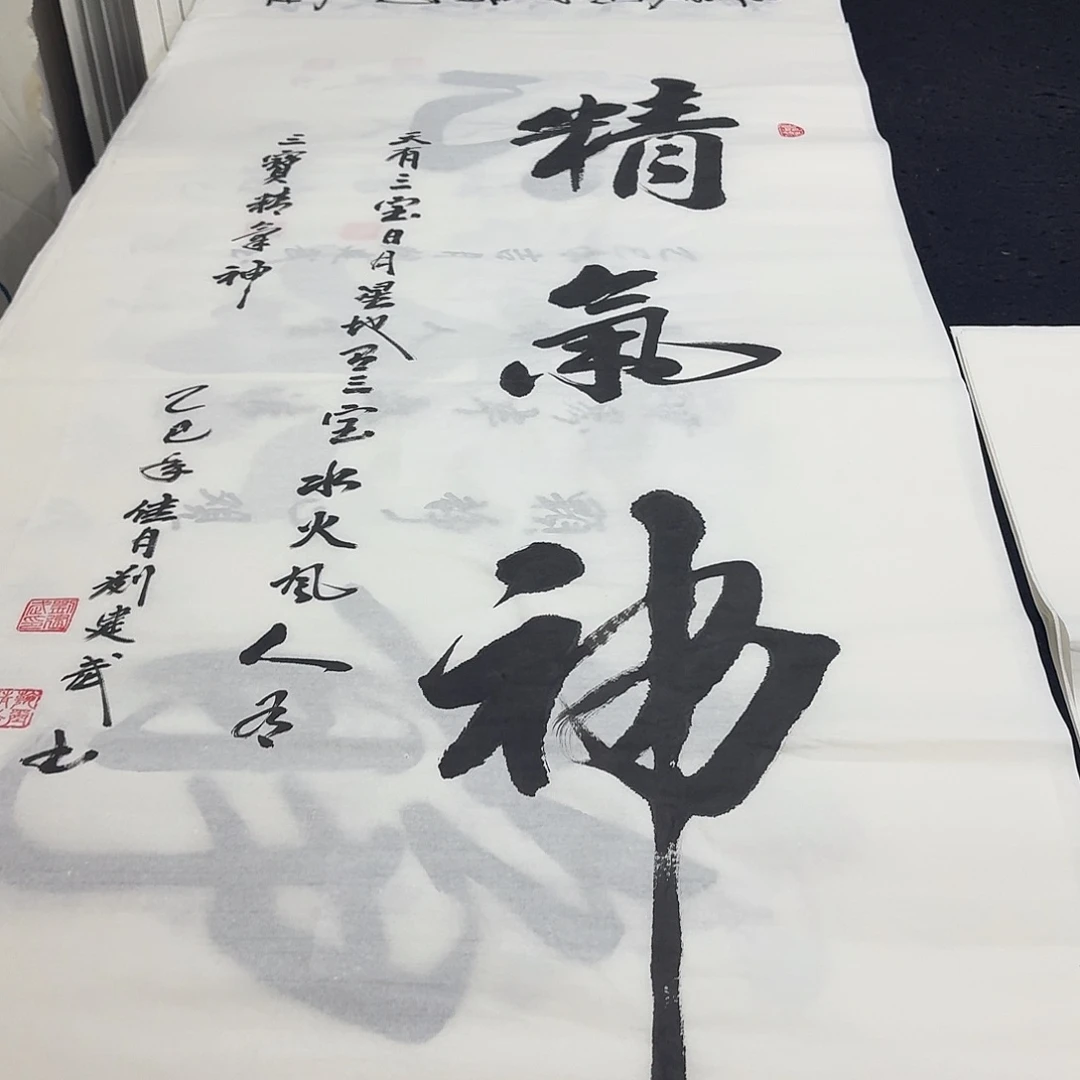 精氣神
天有三宝日月星地有三宝水火風人有
三寶精氣神
乙巳年佳月劉建武书